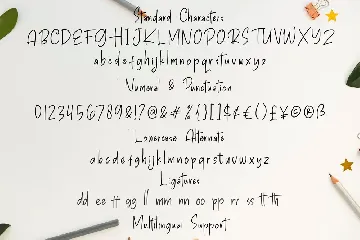 Standard Characters
ABCDEFGHIJKLMNOPQRSTUVWXYZ
abcdefghijklmnopqrstuvwxyz
Numeral & Punctuation
0123456789&!?@&#%{}[]$¢€()£¥©®ß
Lowercase Alternate
abcdefghijklmnopqrstuvwxyz
Ligatures
dd ee ff gg ll mm nn oo pp rr ss tt th
Multilingual Support